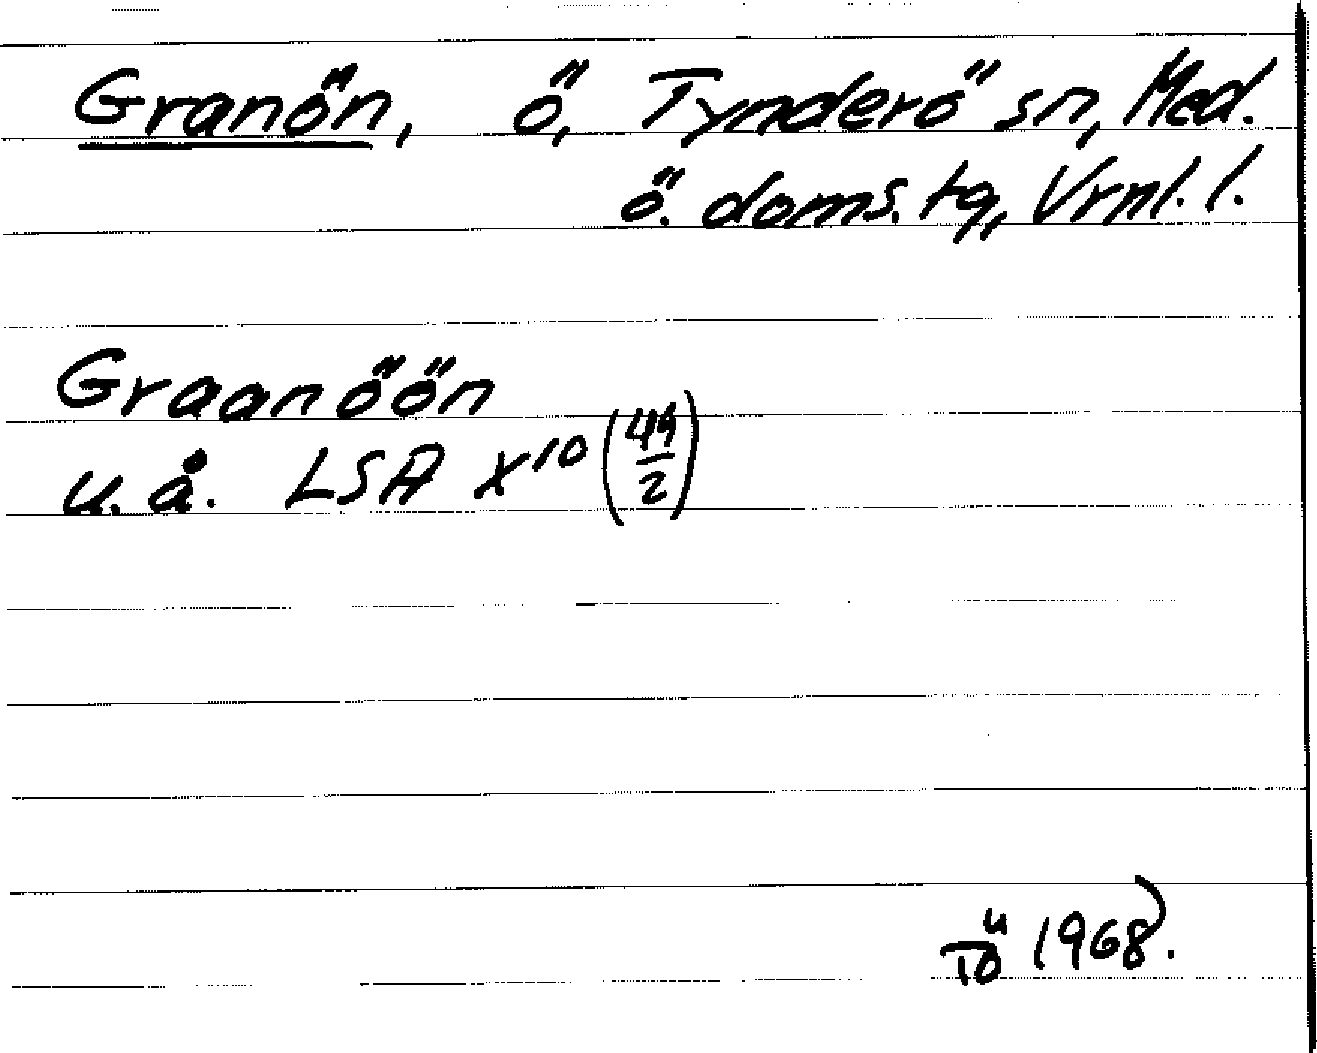 Granön, ö, Tynderö sn, Med.
ö. doms. tg, Vrnl. l.
Graanöön
u. å. LSA X¹⁰ (49/2)
TÖ 1968.